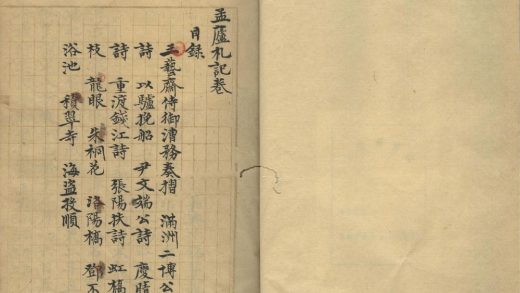 孟廬札記卷
目錄
王藝齋侍御漕務奏摺 滿洲二傳公
詩 以驢挽船 尹文端公詩 慶晴
詩 重渡錢江詩 張陽扶詩 虹橋
枝 龍眼 朱桐花 洛陽橋 鄧不
浴池 積翠寺 海盜投順